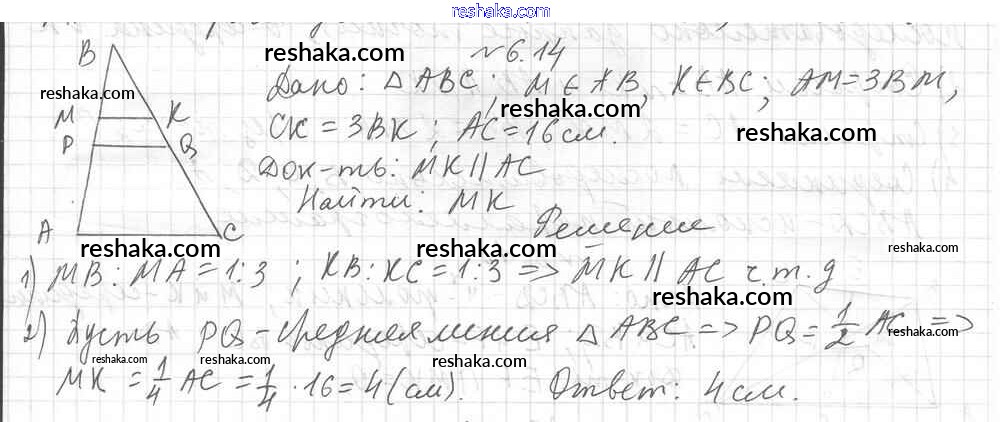 reshaka.com
№6.14
B
reshaka.com
Дано: △ ABC; M ∈ AB, K ∈ BC; AM=3BM,
reshaka.com
reshaka.com
M K
CK = 3BK; AC=16 см.
reshaka.com
P Q
Док-ть: MK ∥ AC
Найти: MK
A C
Решение
reshaka.com
reshaka.com
reshaka.com
1) MB : MA = 1:3 ; KB : KC = 1:3 => MK ∥ AC ч.т.д
reshaka.com
2) Пусть PQ - средняя линия △ ABC => PQ = 1/2 AC =>
reshaka.com
reshaka.com
reshaka.com
reshaka.com
reshaka.com
MK = 1/4 AC = 1/4 · 16 = 4 (см). Ответ: 4 см.
reshaka.com
reshaka.com